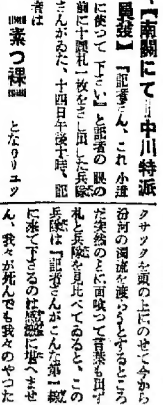 【南關にて 中川特派
員發】『記者さん、これ小遣
に使つて下さい』と記者の眼の
前に十圓札一枚をさし出した兵隊
さんがゐた、十四日午後十時、記
者は
素つ裸
となりリユツ
クサツクを頭の上にのせて今から
汾河の濁流を渡らうとするところ
だ突然のことに面喰つて言葉も出ず
札と兵隊を見比べてゐると、この
兵隊は『記者さんがこんな第一線
に來て下さるのは感激に堪へませ
ん、我々が死んでも我々のやつた